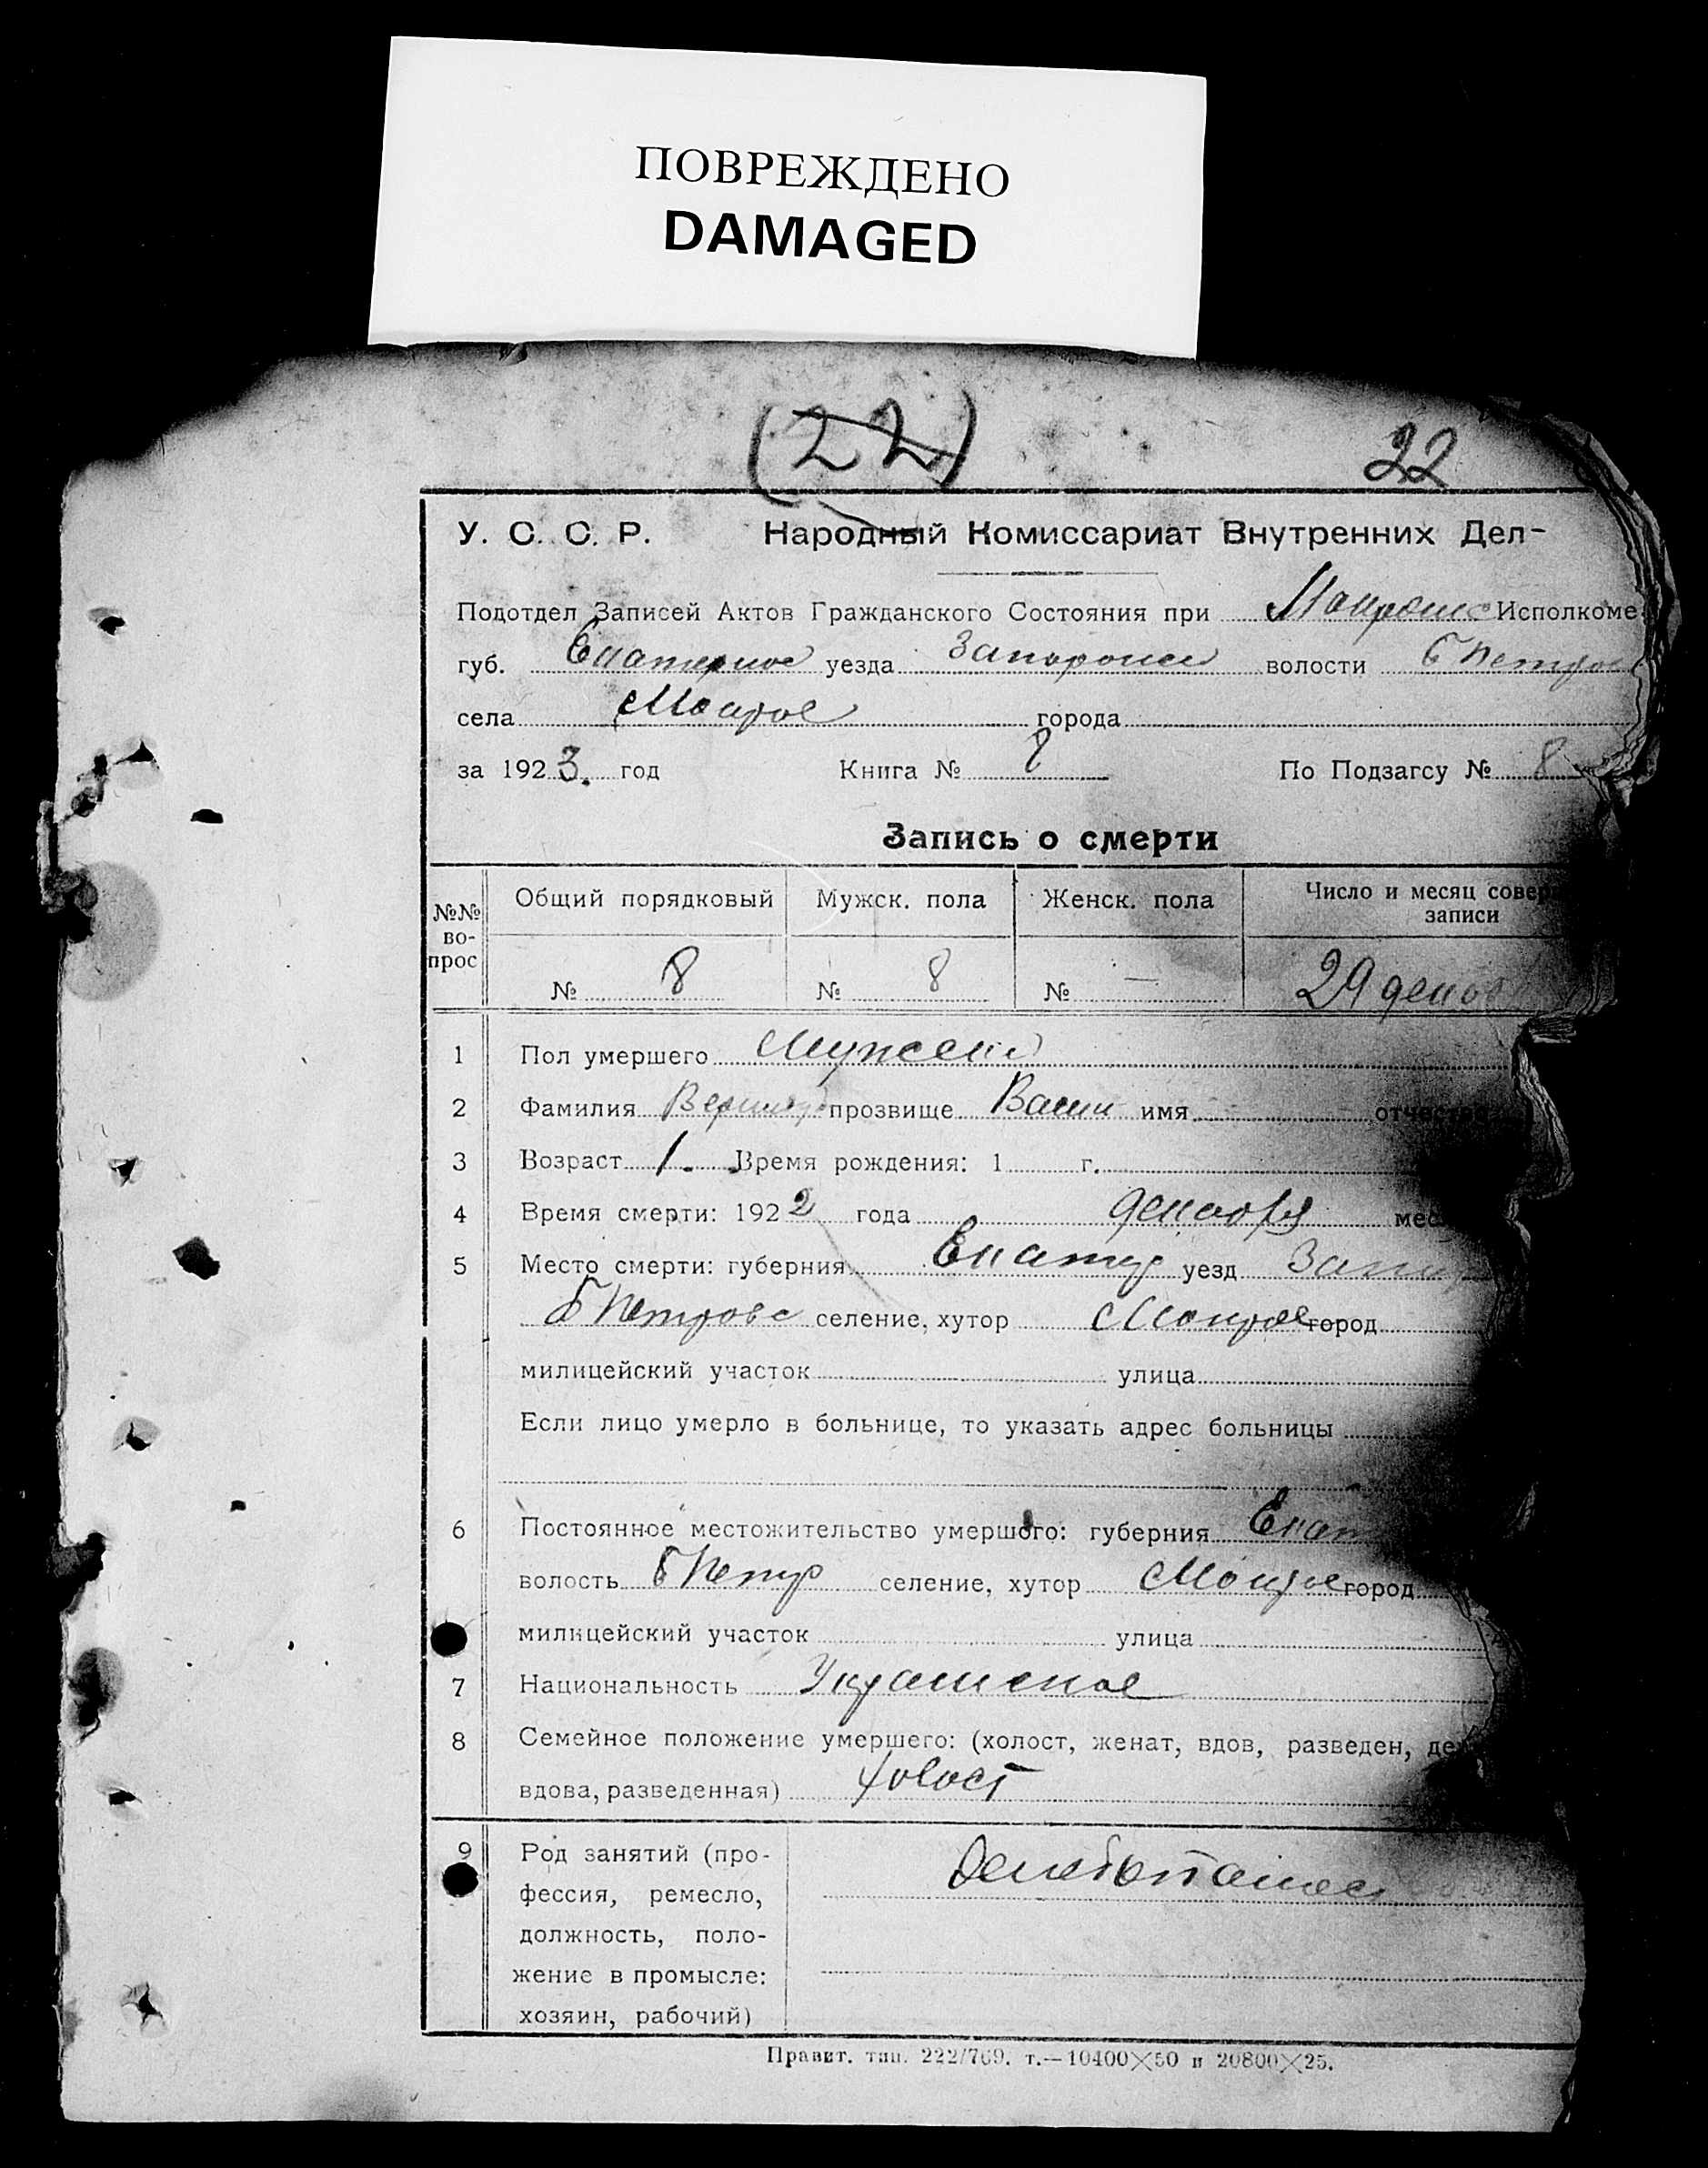 ПОВРЕЖДЕНО
DAMAGED
(22) 22
У. С. С. Р. Народный Комиссариат Внутренних Дел-
Подотдел Записей Актов Гражданского Состояния при Исполкоме
губ. уезда волости
села Мокрое города
за 1923. год Книга № 8 По Подзагсу № 8
Запись о смерти
№№ во- прос Общий порядковый Мужск. пола Женск. пола Число и месяц совер
записи
№ 8 № 8 № — 29
1 Пол умершего
2 Фамилия прозвище имя отчество
3 Возраст 1. Время рождения: 1 г.
4 Время смерти: 1922 года декабря мес
5 Место смерти: губерния Екатер уезд
селение, хутор Мокрое город
милицейский участок улица
Если лицо умерло в больнице, то указать адрес больницы
6 Постоянное местожительство умершого: губерния Екат
волость Б Петр селение, хутор Мокрое город
милицейский участок улица
7 Национальность
8 Семейное положение умершего: (холост, женат, вдов, разведен, де
вдова, разведенная) холост
9 Род занятий (про-
фессия, ремесло,
должность, поло-
жение в промысле:
хозяин, рабочий)
Правит. тип. 222/769. т.—10400×50 и 20800×25.